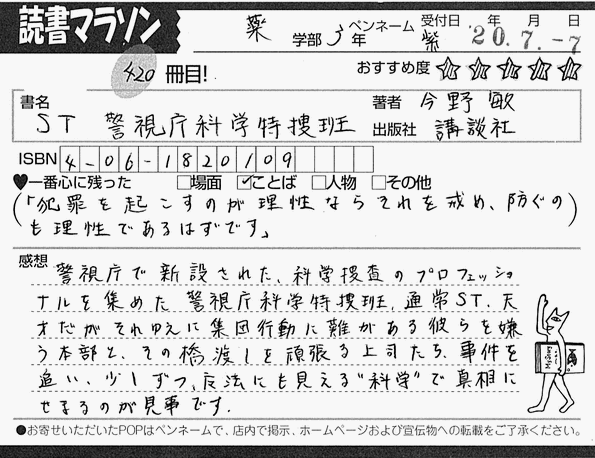 読書マラソン
薬 学部 3年 ペンネーム 紫 受付日 年 月 日 20.7.-7
420 冊目! おすすめ度 ☆☆☆☆☆
書名 著者 今野 敏
ST 警視庁科学特捜班 出版社 講談社
ISBN 4-06-1820109
♥一番心に残った □場面 ☑ことば □人物 □その他
(「犯罪を起こすのが理性ならそれを戒め、防ぐの
も理性であるはずです」)
感想
警視庁で新設された、科学捜査のプロフェッショ
ナルを集めた警視庁科学特捜班、通常ST。天
才だがそれゆえに集団行動に難がある彼らを嫌
う本部と、その橋渡しを頑張る上司たち、事件を
追い、少しずつ、反法にも見える“科学”で真相に
せまるのが見事です。
●お寄せいただいたPOPはペンネームで、店内で掲示、ホームページおよび宣伝物への転載をご了承ください。